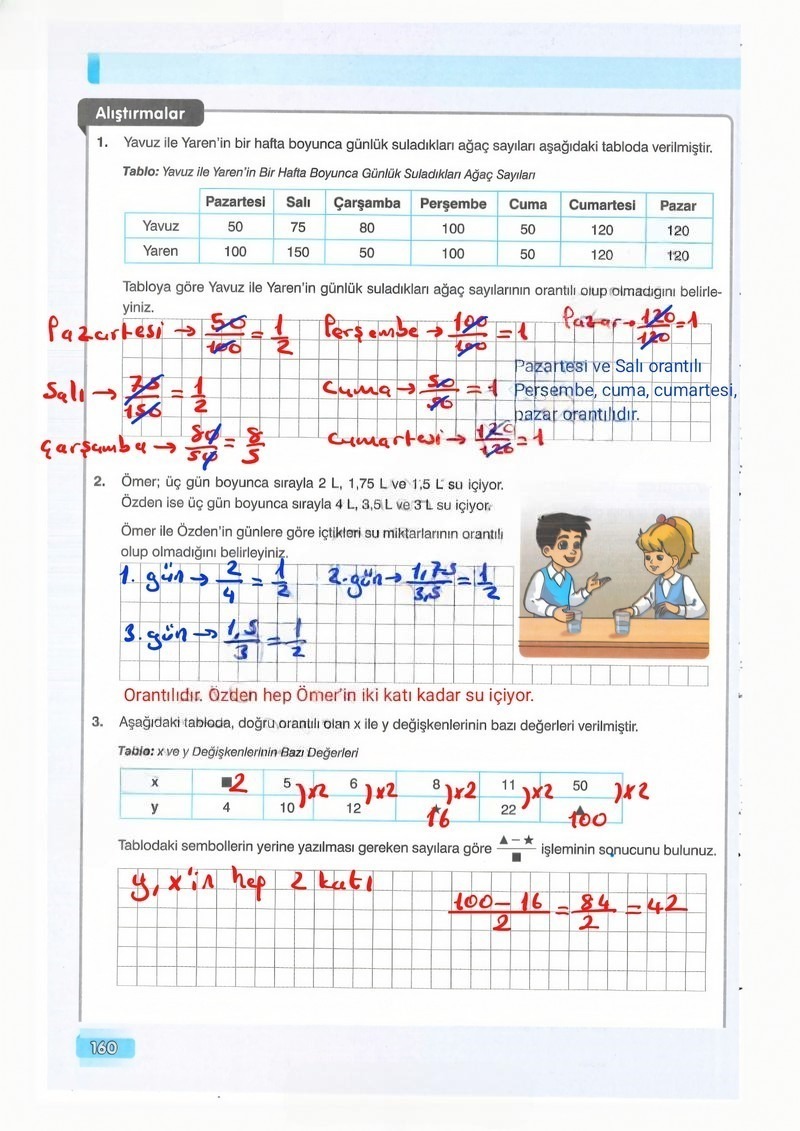 Alıştırmalar
1. Yavuz ile Yaren'in bir hafta boyunca günlük suladıkları ağaç sayıları aşağıdaki tabloda verilmiştir.
Tablo: Yavuz ile Yaren'in Bir Hafta Boyunca Günlük Suladıkları Ağaç Sayıları
Pazartesi Salı Çarşamba Perşembe Cuma Cumartesi Pazar
Yavuz 50 75 80 100 50 120 120
Yaren 100 150 50 100 50 120 120
Tabloya göre Yavuz ile Yaren'in günlük suladıkları ağaç sayılarının orantılı olup olmadığını belirle-
yiniz.
Pazartesi → 50/100 = 1/2 Perşembe → 100/100 = 1 Pazar → 120/120 = 1
Salı → 75/150 = 1/2 Cuma → 50/50 = 1
Pazartesi ve Salı orantılı
Perşembe, cuma, cumartesi,
pazar orantılıdır.
Çarşamba → 80/50 = 8/5 Cumartesi → 120/120 = 1
2. Ömer; üç gün boyunca sırayla 2 L, 1,75 L ve 1,5 L su içiyor.
Özden ise üç gün boyunca sırayla 4 L, 3,5 L ve 3 L su içiyor.
Ömer ile Özden'in günlere göre içtikleri su miktarlarının orantılı
olup olmadığını belirleyiniz.
1. gün → 2/4 = 1/2 2. gün → 1,75/3,5 = 1/2
3. gün → 1,5/3 = 1/2
Orantılıdır. Özden hep Ömer'in iki katı kadar su içiyor.
3. Aşağıdaki tabloda, doğru orantılı olan x ile y değişkenlerinin bazı değerleri verilmiştir.
Tablo: x ve y Değişkenlerinin Bazı Değerleri
x ■ 2 5 6 8 11 50
)x2 )x2 )x2 )x2 )x2
y 4 10 12 ★ 16 22 ▲ 100
Tablodaki sembollerin yerine yazılması gereken sayılara göre ▲ - ★/■ işleminin sonucunu bulunuz.
y, x'in hep 2 katı
100 - 16/2 = 84/2 = 42
160